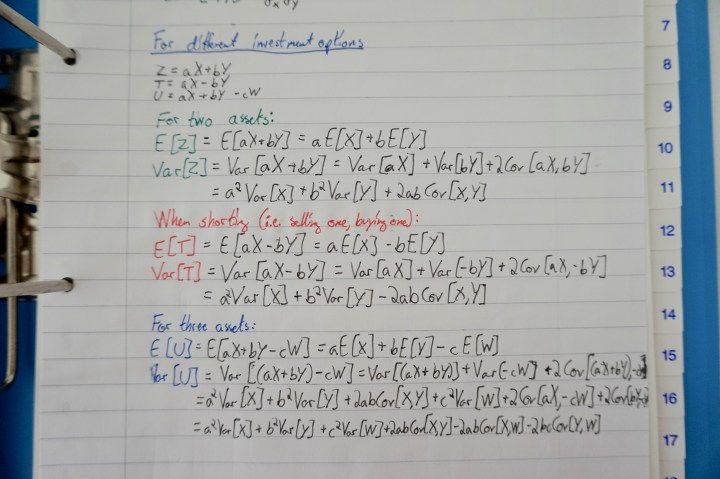 For different investment options
Z = aX+bY
T = aX-bY
U = aX+bY-cW
For two assets:
E[Z] = E[aX+bY] = aE[X]+bE[Y]
Var[Z] = Var[aX+bY] = Var[aX]+Var[bY]+2Cov[aX,bY]
= a²Var[X]+b²Var[Y]+2abCov[X,Y]
When shorting (i.e. selling one, buying one):
E[T] = E[aX-bY] = aE[X]-bE[Y]
Var[T] = Var[aX-bY] = Var[aX]+Var[-bY]+2Cov[aX,-bY]
= a²Var[X]+b²Var[Y]-2abCov[X,Y]
For three assets:
E[U] = E[aX+bY-cW] = aE[X]+bE[Y]-cE[W]
Var[U] = Var[(aX+bY)-cW] = Var[(aX+bY)]+Var[-cW]+2Cov[(aX+bY),
= a²Var[X]+b²Var[Y]+2abCov[X,Y]+c²Var[W]+2Cov[aX,-cW]+2Cov[bY,
= a²Var[X]+b²Var[Y]+c²Var[W]+2abCov[X,Y]-2abCov[X,W]-2bcCov[Y,W]
7
8
9
10
11
12
13
14
15
16
17